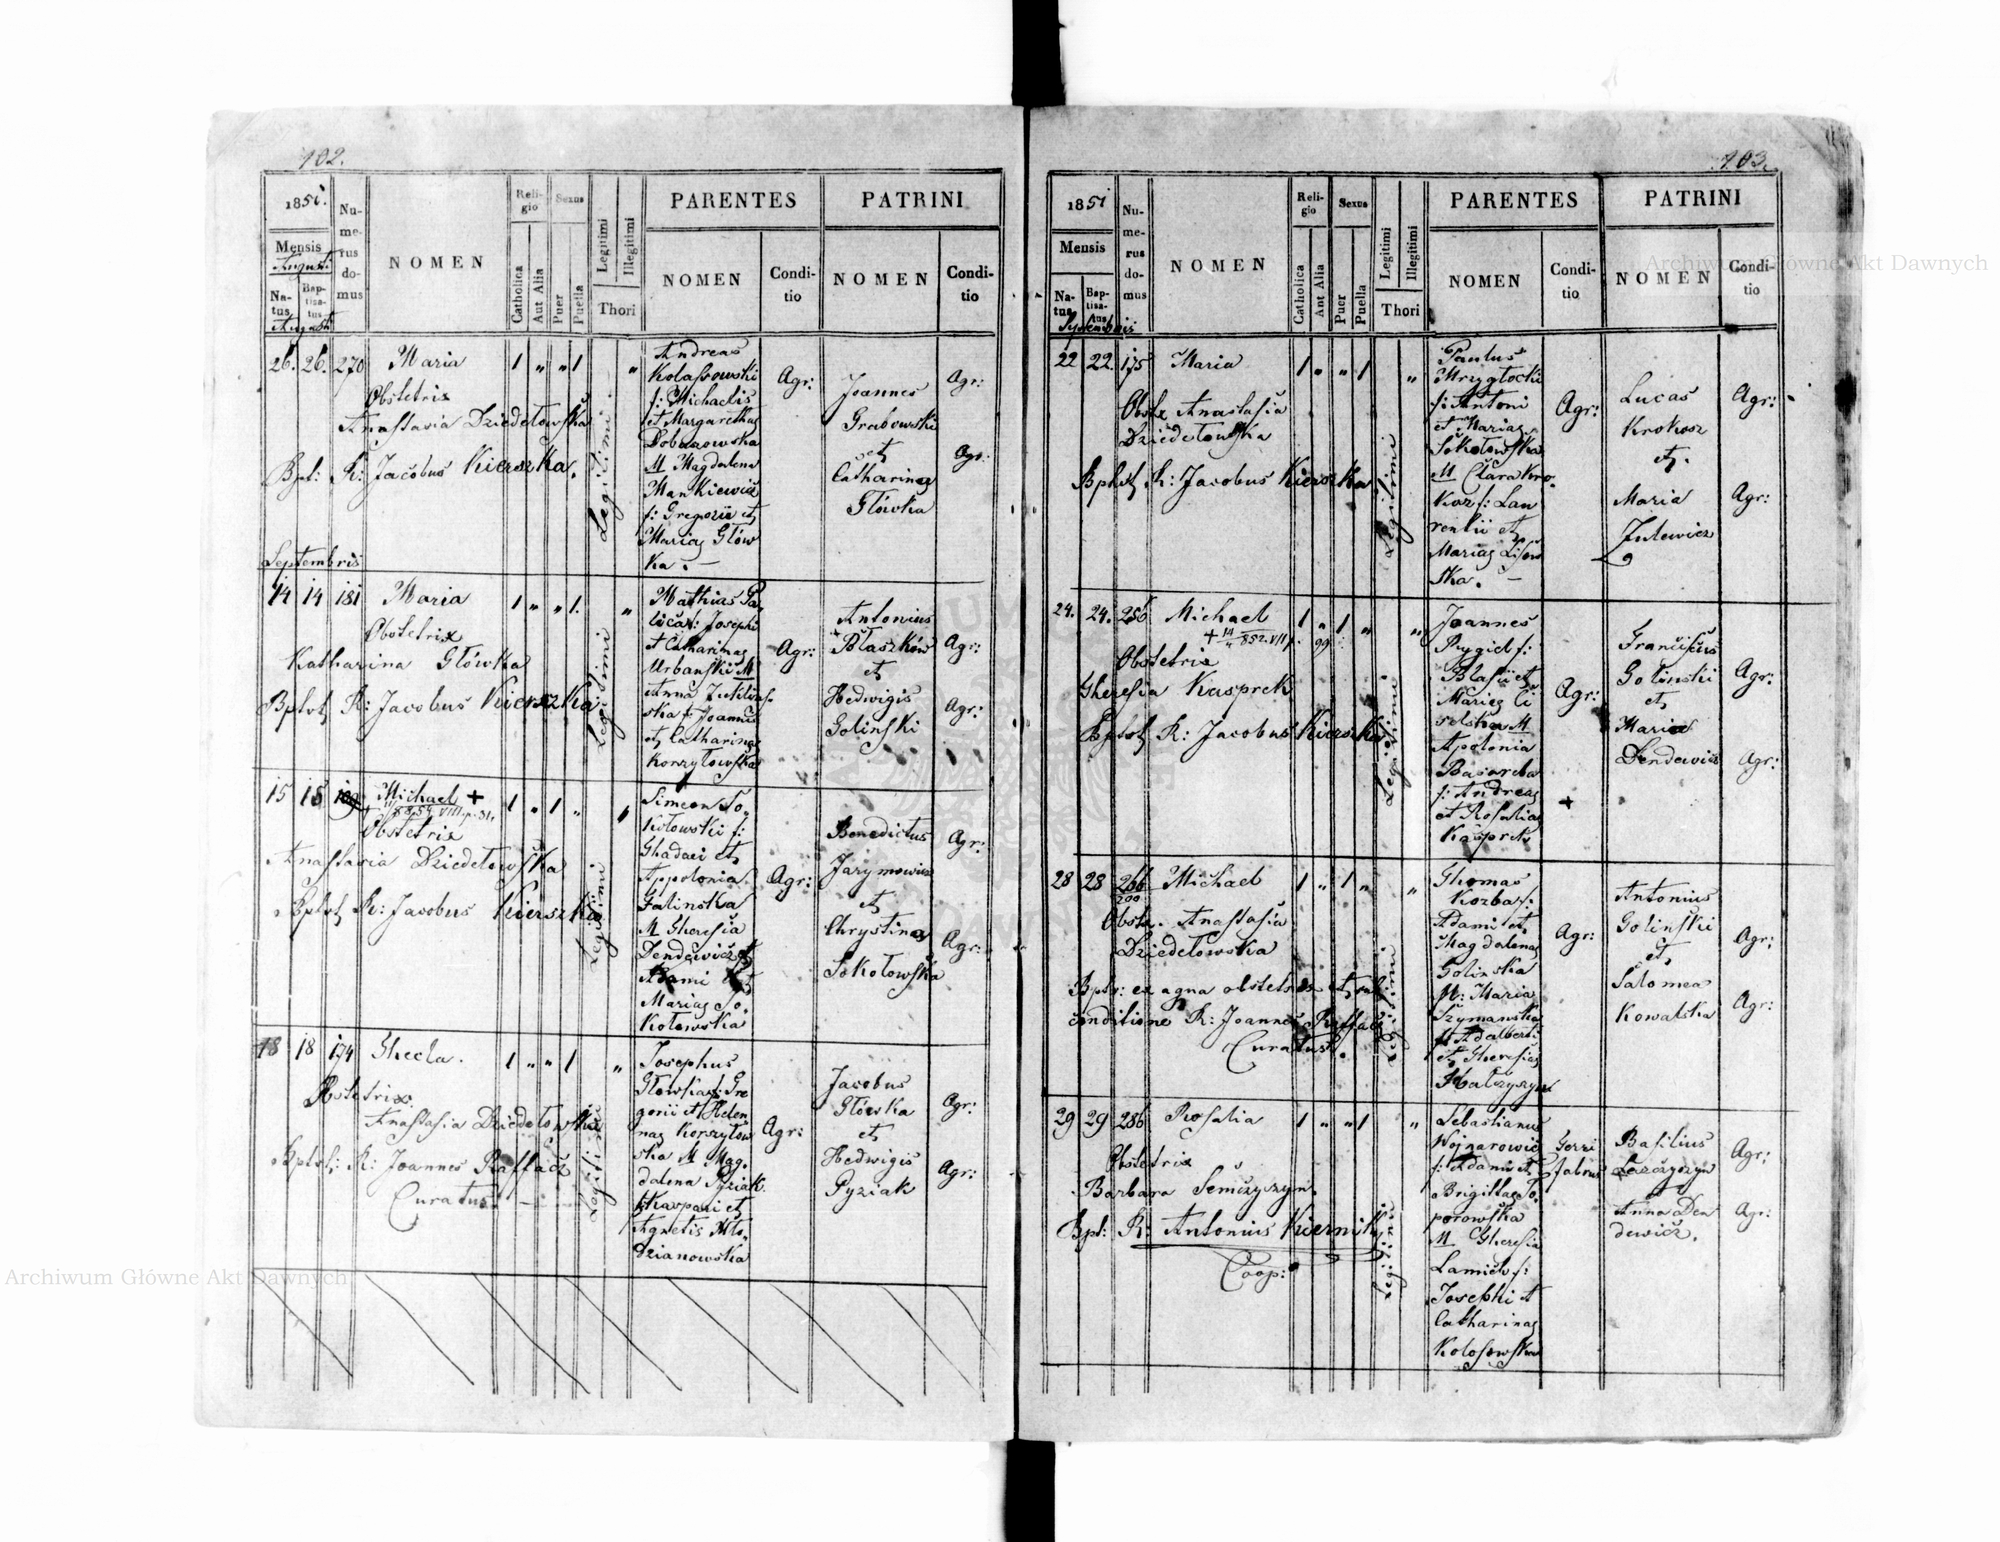 102.
1851.
Mensis
Augusti
Natus
Baptisatus
Augusti
Numerus domus
NOMEN
Religio
Catholica
Aut Alia
Sexus
Puer
Puella
Legitimi
Illegitimi
Thori
PARENTES
NOMEN
Conditio
PATRINI
NOMEN
Conditio
26. 26. 270 Maria 1 „ „ 1 „
Obstetrix
Anastasia Dziedełowska
Bpt: R: Jacobus Kierszka.
Legitimi
Andreas
Kolassowski
f: Michaelis
et Margarethae
Dobrzowska
M Magdalena
Mankiewicz
f: Gregorii et
Mariae Głów
ka. —
Agr:
Joannes
Grabowski
et
Catharina
Główka
Agr:
Agr:
Septembris
14 14 181 Maria 1 „ „ 1. „
Obstetrix
Katharina Główka
Bptvt R: Jacobus Kierszka
Legitimi
Mathias Pa
f: Josephi
et Catharinae
Urbanski M
Anna
ska f: Joannis
et Catharinae
Korzytowska
Agr:
Antonius
Płaszków
et
Hedwigis
Golinski
Agr:
Agr:
15 18 189 Michael + 1 „ 1 „ „
Obstetrix
Anastasia Dziedełowska
Bptvt R: Jacobus Kierszka
Legitimi
Simeon So
kołowski f:
Thadaei et
Appolonia
Galinska
M Theresia
Dendewicz f
Adami et
Mariae So
kołowska
Agr:
Benedictus
Jarymowicz
et
Chrystina
Sokołowska
Agr:
Agr:
18 18 174 Thecla. 1 „ „ 1 „
Obstetrix
Anastasia Dziedełowska
Bptvt: R: Joannes Raffacz
Curatus. —
Legitimi
Josephus
Głowka f: Gre
gorii et Helen
nae Korzytow
ska M Mag
dalena Pyziak
f Kaspari et
Agnetis Mło
dzianowska
Agr:
Jacobus
Główka
et
Hedwigis
Pyziak
Agr:
Agr:
103.
1851
Mensis
Natus
Baptisatus
Septembris
Numerus domus
NOMEN
Religio
Catholica
Aut Alia
Sexus
Puer
Puella
Legitimi
Illegitimi
Thori
PARENTES
NOMEN
Conditio
PATRINI
NOMEN
Conditio
22 22. 175 Maria 1 „ „ 1 „
Obstx Anastasia
Dziedełowska
Bptvt R: Jacobus Kierszka
Legitimi
Paulus
Mrzygłocki
f: Antoni
et Mariae
Sokołowska
M Clara Kro
koz f: Lau
rentii et
Mariae Lisow
ska. —
Agr:
Lucas
Krokosz
et.
Maria
Zulewicz
Agr:
Agr:
24. 24. 256 Michael 1 „ 1 „ „
Obstetrix
Theresia Kasprek
Bptvt R: Jacobus Kierszka
Legitimi
Joannes
Rygiel f:
Blasii et
Mariae Ci
selska M
Apolonia
Basareba
f: Andreae
et Rosalia
Kasprek
Agr:
+
Franciscus
Golinski
et
Maria
Dendewicz
Agr:
Agr:
28 28 266 Michael 1 „ 1 „ „
200
Obstx. Anastasia
Dziedełowska
Bptv: ex aqua obstetrix et sub
conditione R: Joannes Raffacz
Curatus.
Legitimi
Thomas
Kozba f:
Adami et
Magdalena
Golinska
M: Maria
Szymanska
f: Adalberti
et Theresiae
Hałczyszyn
Agr:
Antonius
Golinski
et
Salomea
Kowalska
Agr:
Agr:
29 29 286 Rosalia 1 „ „ 1 „
Obstetrix
Barbara Semczyszyn.
Bpt: R: Antonius Kiernik
Coop:
Legitimi
Sebastianus
Wojnarowic
f: Adami et
Brigittae To
porowska
M Theresia
Lamich f:
Josephi et
Catharinae
Kolosowska
Ferri
fabrus
Basilius
Łazczyszyn
Anna Den
dewicz.
Agr:
Agr:
Archiwum Główne Akt Dawnych
Archiwum Główne Akt Dawnych